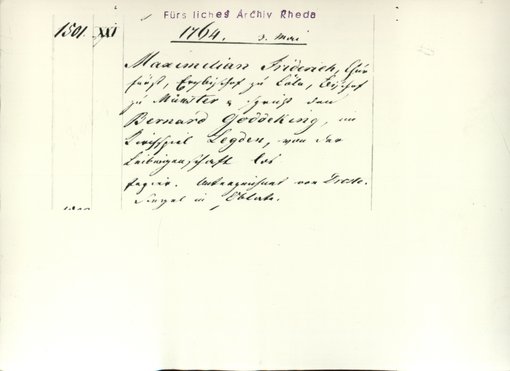 Fürs liches Archiv Rheda
1501. XXI 1764. 3. Mai
Maximilian Friderich, Chur
fürst, Erzbischof zu Cöln, Bischof
zu Münster spricht den
Bernard Goddeking, im
Kirchspiel Legden, von der
Leibeigenschaft los
Papier. Unterzeichnet von Droste.
Siegel in Oblate.